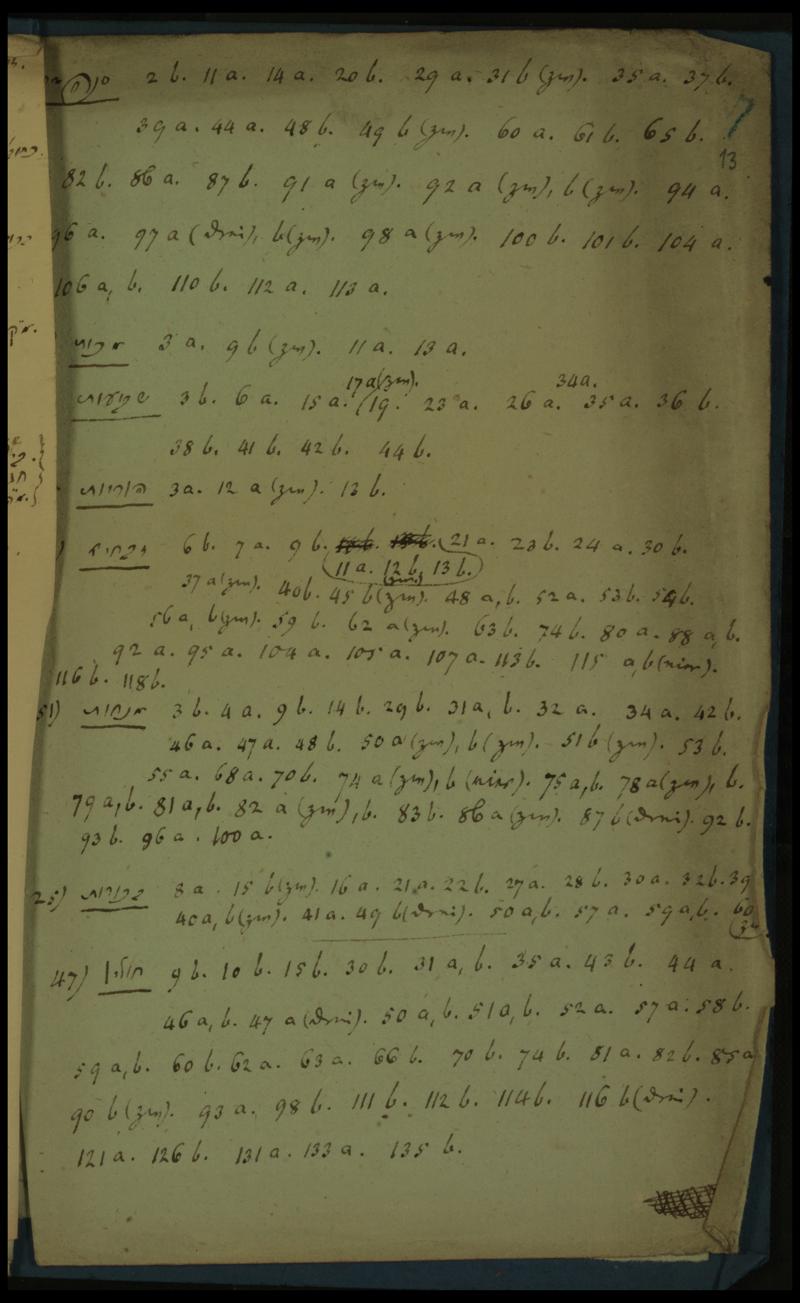 2 b. 11 a. 14 a. 20 b. 29 a. 31 b (zm). 35 a. 37 b.
39 a. 44 a. 48 b. 49 b (zm). 60 a. 61 b. 65 b. 7
13
82 b. 86 a. 87 b. 91 a (zm). 92 a (zm), b (zm). 94 a.
96 a. 97 a (drei), b (zm). 98 a (zm). 100 b. 101 b. 104 a.
106 a, b. 110 b. 112 a. 113 a.
מכות 3 a. 9 b (zm). 11 a. 13 a.
17 a (zm). 34 a.
שבועות 3 b. 6 a. 15 a. 19. 23 a. 26 a. 35 a. 36 b.
38 b. 41 b. 42 b. 44 b.
הוריות 3 a. 12 a (zm). 13 b.
זבחים 6 b. 7 a. 9 b. 21 a. 23 b. 24 a. 30 b.
11 a. 12 b. 13 b.
37 a (zm). 40 b. 45 b (zm). 48 a, b. 52 a. 53 b. 54 b.
56 a, b (zm). 59 b. 62 a (zm). 63 b. 74 b. 80 a. 88 a, b.
92 a. 95 a. 104 a. 105 a. 107 a. 113 b. 115 a, b (vier).
116 b. 118 b.
51) מנחות 3 b. 4 a. 9 b. 14 b. 29 b. 31 a, b. 32 a. 34 a. 42 b.
46 a. 47 a. 48 b. 50 a (zm), b (zm). 51 b (zm). 53 b.
55 a. 68 a. 70 b. 74 a (zm), b (vier). 75 a, b. 78 a (zm), b.
79 a, b. 81 a, b. 82 a (zm), b. 83 b. 86 a (zm). 87 b (drei). 92 b.
93 b. 96 a. 100 a.
25) בכורות 8 a. 15 b (zm). 16 a. 21 a. 22 b. 27 a. 28 b. 30 a. 32 b. 39
40 a, b (zm). 41 a. 49 b (drei). 50 a, b. 57 a. 59 a, b. 60
47) חולין 9 b. 10 b. 15 b. 30 b. 31 a, b. 35 a. 43 b. 44 a.
46 a, b. 47 a (drei). 50 a, b. 51 a, b. 52 a. 57 a. 58 b.
59 a, b. 60 b. 62 a. 63 a. 66 b. 70 b. 74 b. 81 a. 82 b. 85 a
90 b (zm). 93 a. 98 b. 111 b. 112 b. 114 b. 116 b (drei).
121 a. 126 b. 131 a. 133 a. 135 b.